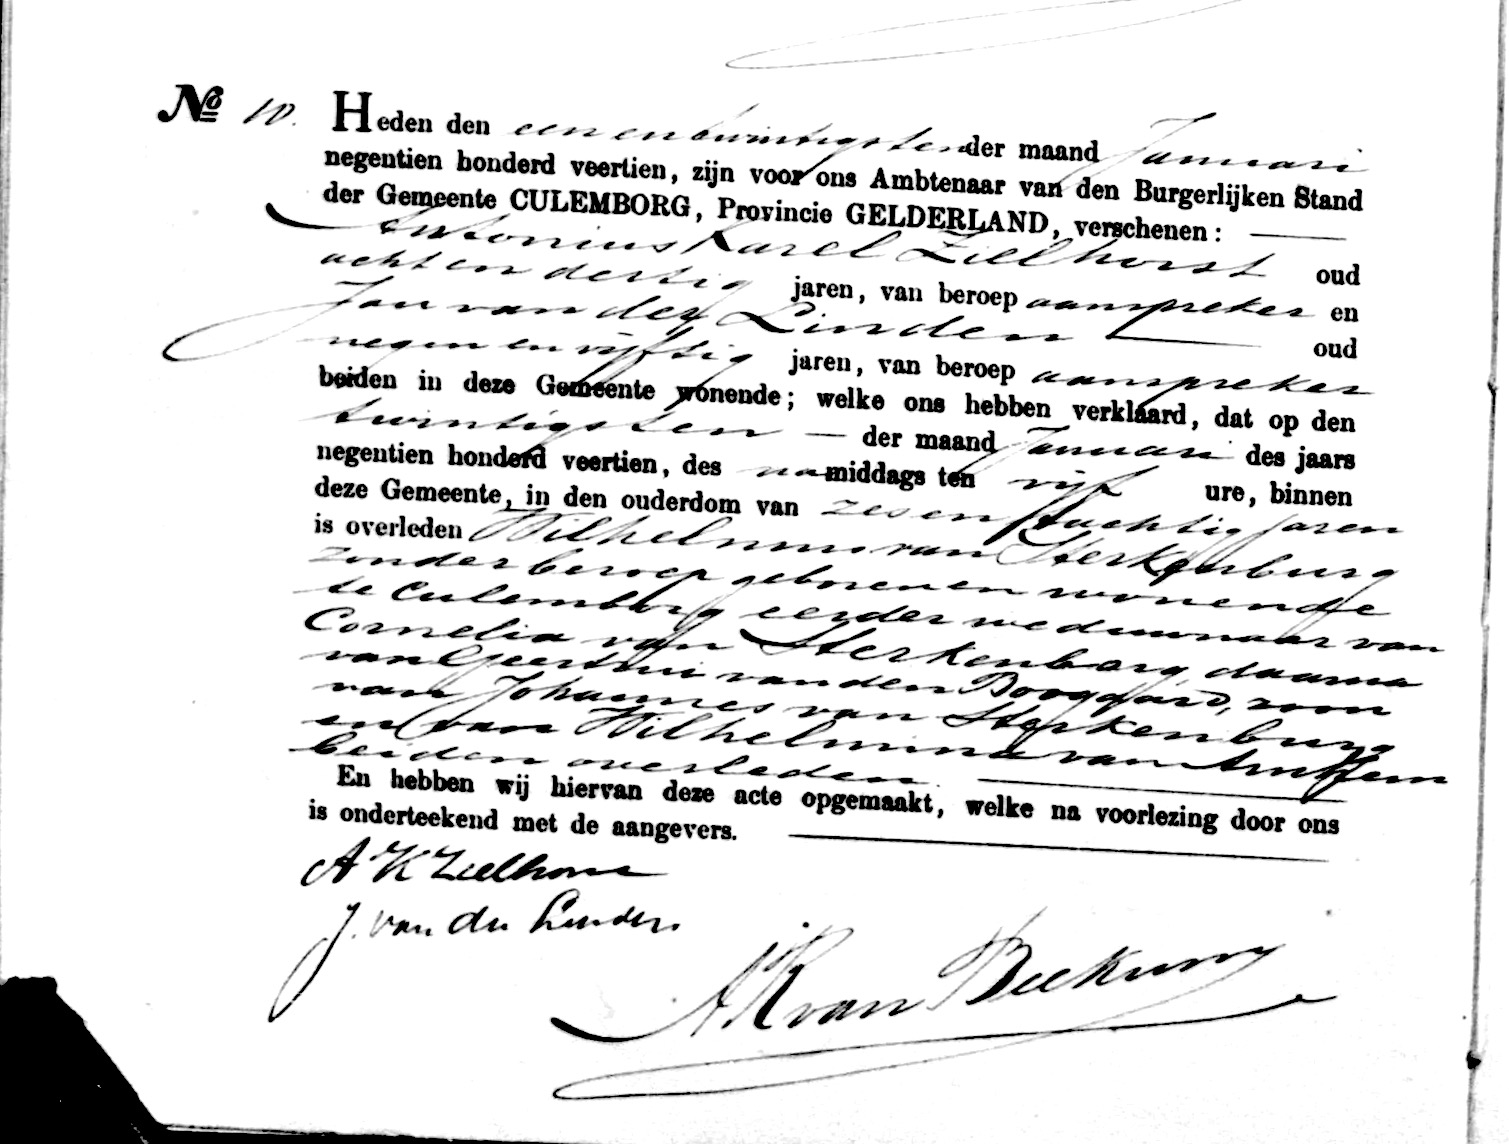 № 10. Heden den een en twintigsten der maand Januari
negentien honderd veertien, zijn voor ons Ambtenaar van den Burgerlijken Stand
der Gemeente CULEMBORG, Provincie GELDERLAND, verschenen:
Antonius Karel Zielhorst oud
acht en dertig jaren, van beroep aanspreker en
Jan van der Linden oud
negen en vijftig jaren, van beroep aanspreker
beiden in deze Gemeente wonende; welke ons hebben verklaard, dat op den
twintigsten — der maand Januari des jaars
negentien honderd veertien, des namiddags ten vijf ure, binnen
deze Gemeente, in den ouderdom van zes en tachtig jaren
is overleden Wilhelmus van Sterkenburg
zonder beroep geboren en wonende
te Culemborg eerder weduwnaar van
Cornelia van Sterkenburg daarna
van Geertrui van den Boogaard, zoon
van Johannes van Sterkenburg
en van Wilhelmina van Arnhem
beiden overleden.
En hebben wij hiervan deze acte opgemaakt, welke na voorlezing door ons
is onderteekend met de aangevers.
A K Zielhorst
J. van der Linden.
van Beekum